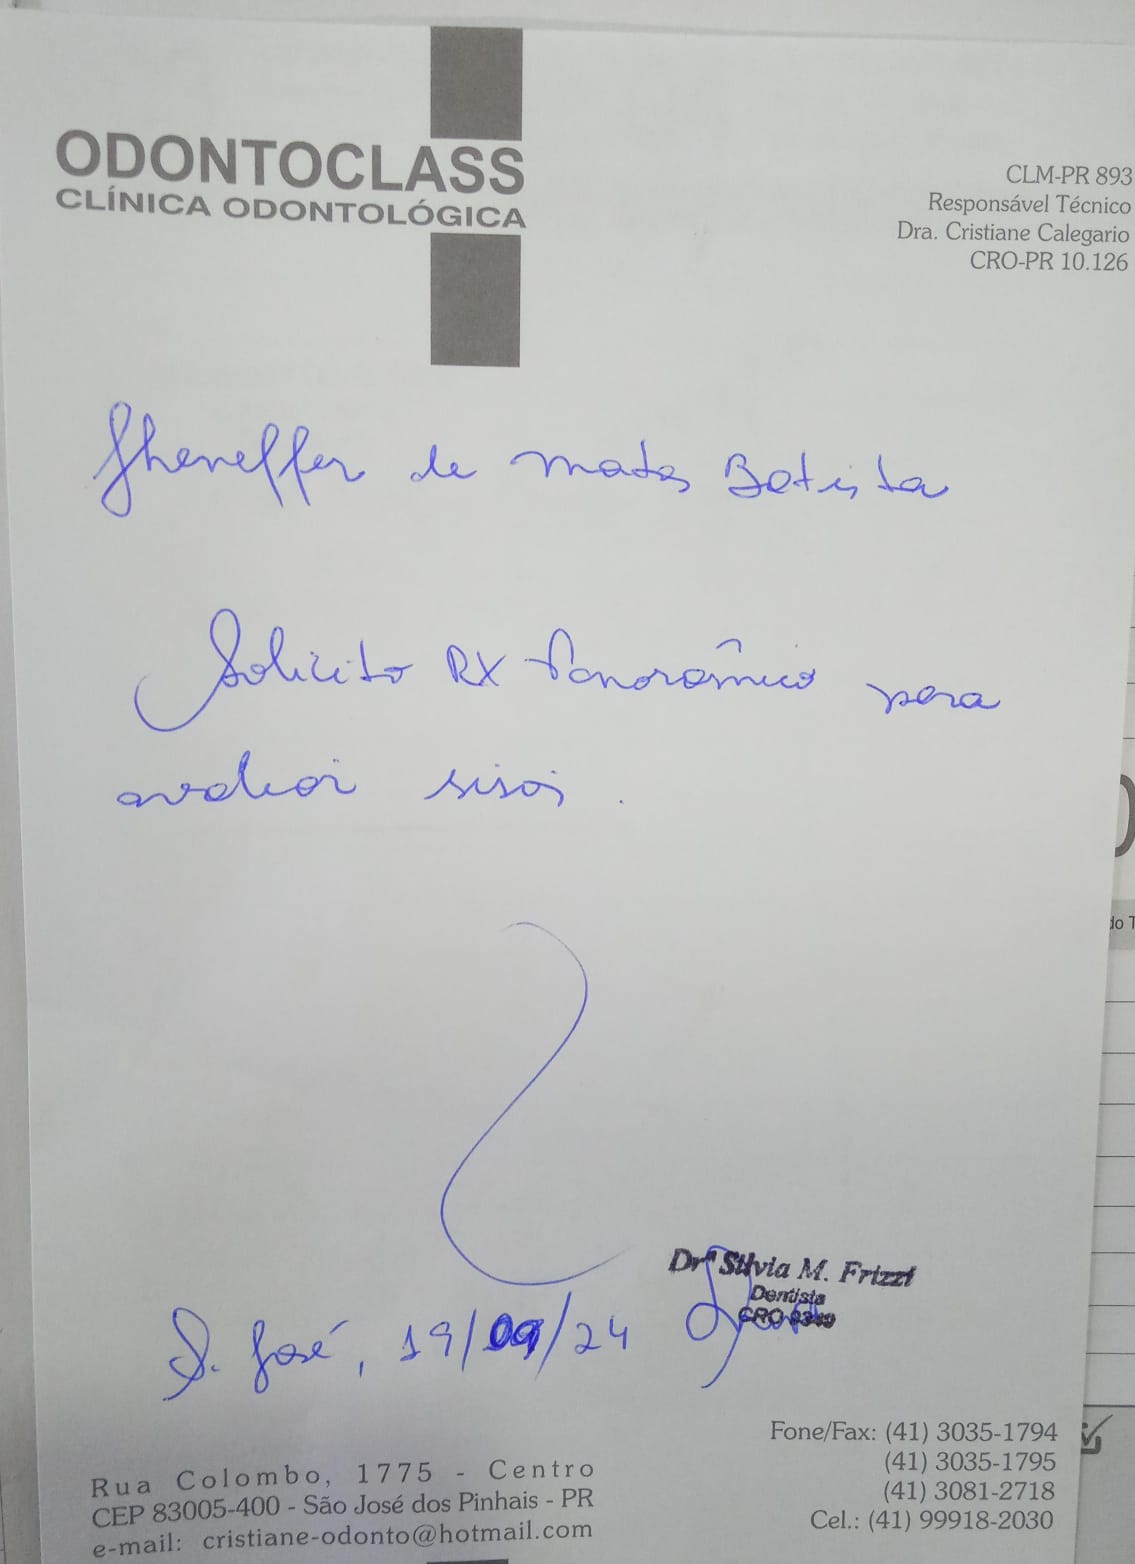 ODONTOCLASS
CLÍNICA ODONTOLÓGICA
CLM-PR 893
Responsável Técnico
Dra. Cristiane Calegario
CRO-PR 10.126
Jheneffer de Matos Batista
Solicito RX Panorâmico para
avaliar sisos.
Drª Silvia M. Frizzi
Dentista
CRO
S. José, 19/09/24
Fone/Fax: (41) 3035-1794
(41) 3035-1795
(41) 3081-2718
Cel.: (41) 99918-2030
Rua Colombo, 1775 - Centro
CEP 83005-400 - São José dos Pinhais - PR
e-mail: cristiane-odonto@hotmail.com